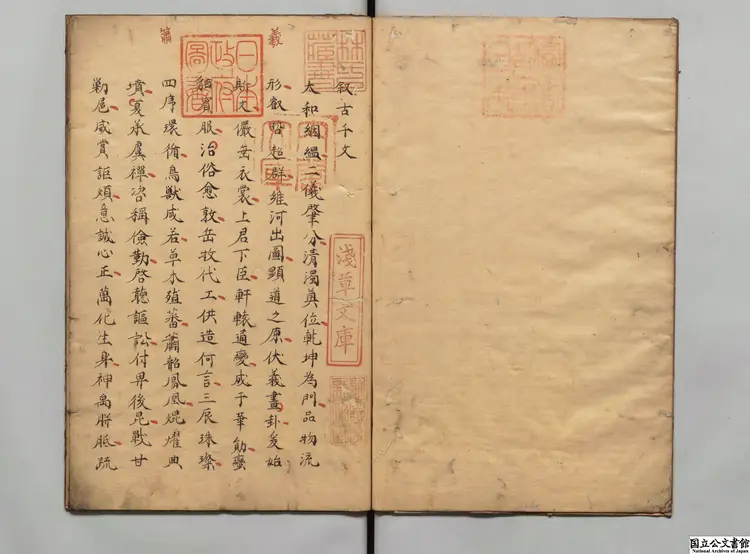 叙古千文
太和絪緼二儀肇分清濁奠位乾坤為門品物流
形叡哲超群維河出圖顯道之原伏羲畫卦爰始
斯文儼垂衣裳上君下臣軒轅通變咸于華勛蠻
貊賓服治俗愈敦岳牧代工供造何言三辰珠璨
四序環循鳥獸咸若草木殖蕃蕭韶鳳凰焜燿典
墳夏承虞禪咨稱儉勤啓聽謳訟付畀後昆戰甘
勦扈威賞詎煩意誠心正萬化生身神禹胼胝疏
羲
蕭
日本
政府
圖書
淺草文庫
国立公文書館
National Archives of Japan